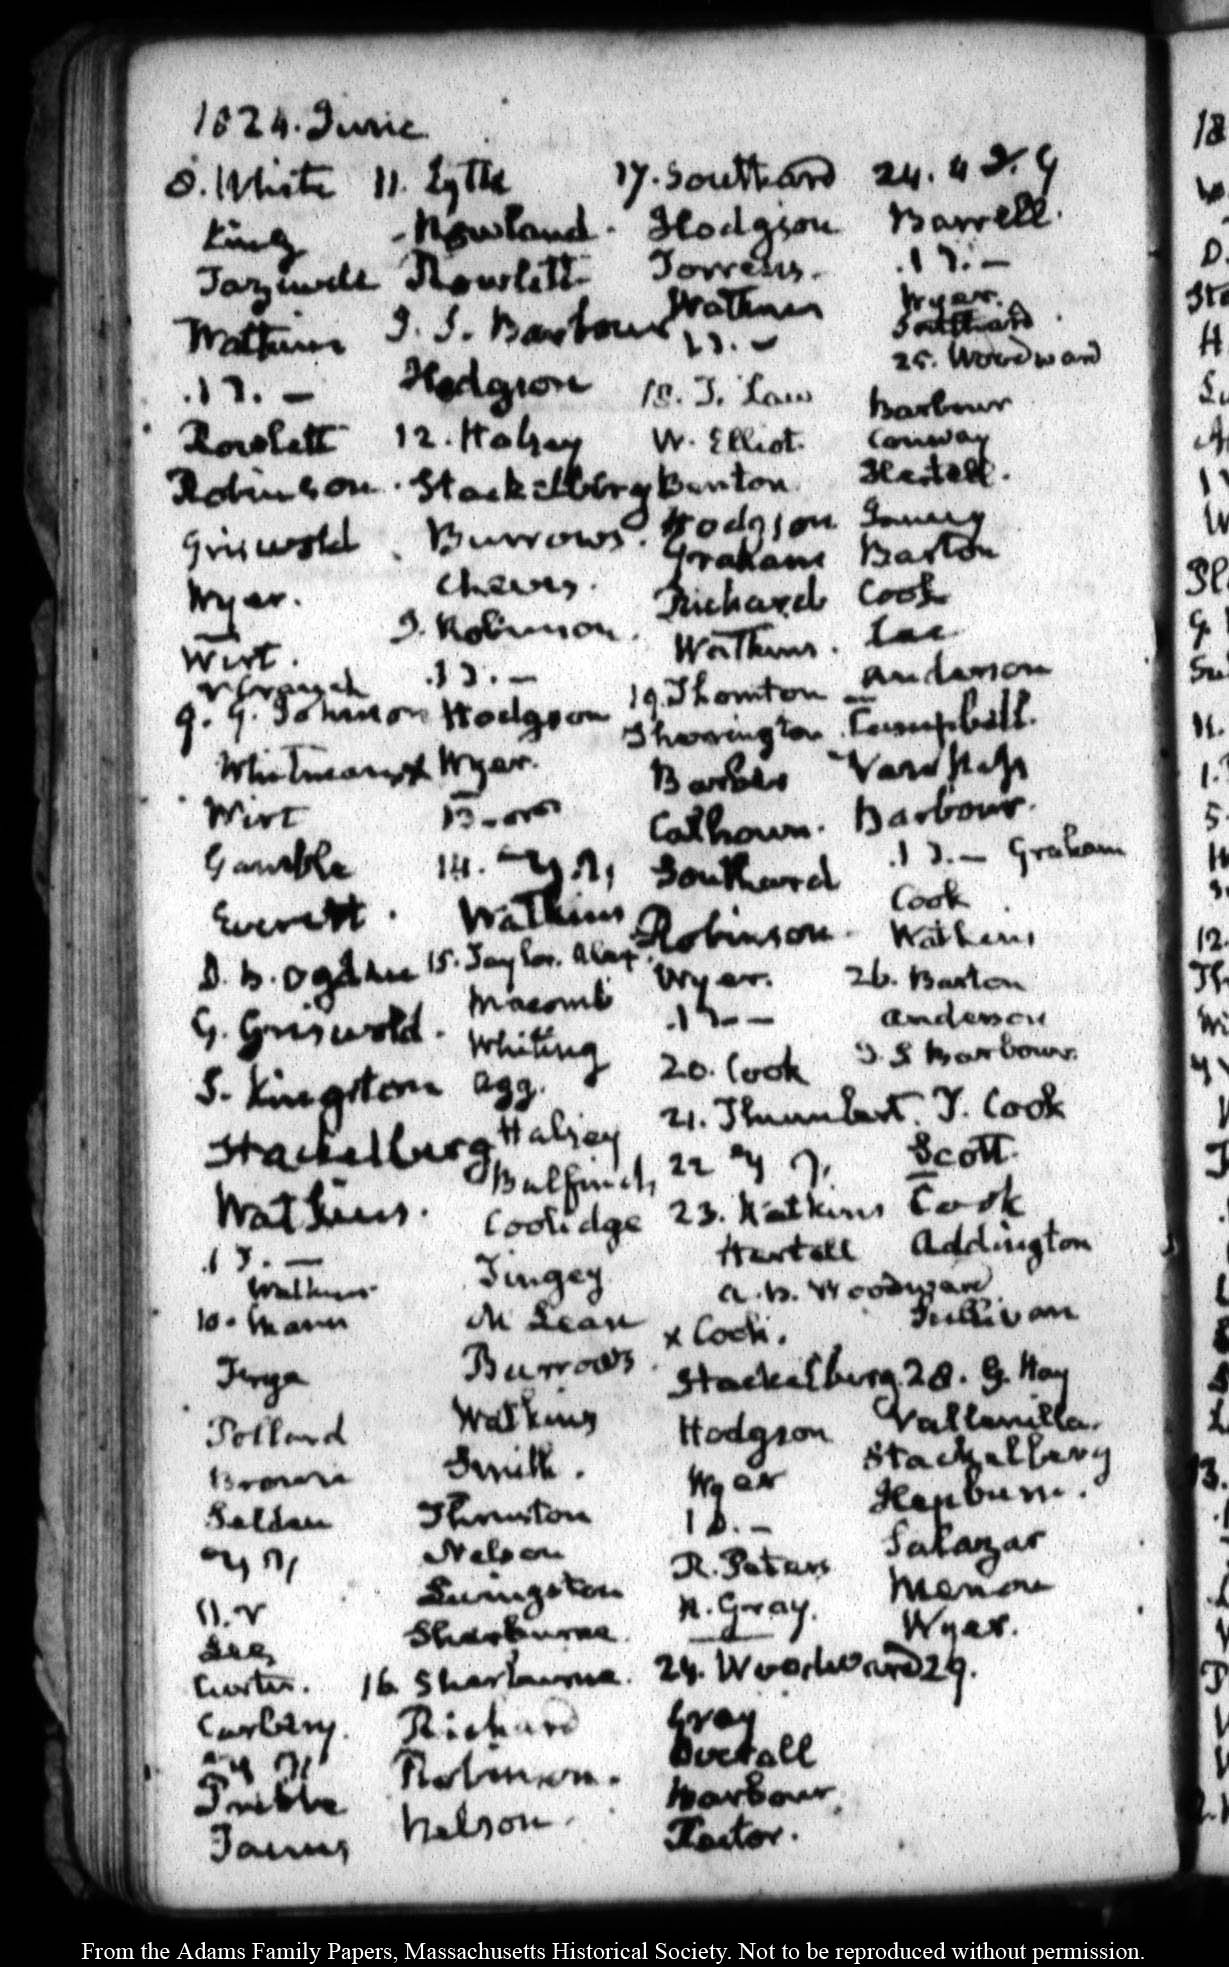 1824. June
8. White
King
Tazewell
Watkins
.17. —
Rowlett
Robinson.
Griswold
Wyer.
Wirt.
9. G. Johnson
Whitman
Wirt
Gamble
Everett.
D. B. Ogden
G. Griswold.
S. Kingston
Stackelberg
Watkins.
.17. —
Watkins
10. Mann
Pollard
Brown
Selden
11.
Lee
Curtis.
Carbery.
Preble
11. Lytle
Nowland.
Rowlett
J. S. Barbour
Hodgson
12. Halsey
Stackelberg
Burrows.
Cheves.
J. Robinson.
.17. —
Hodgson
Wyer.
14.
Watkins
15. Taylor. Alex.
Macomb
Whiting
Agg.
Halsey
Bulfinch
Coolidge
Tingey
McLean
Burrows.
Watkins
Smith.
Thruston
Nelson
Livingston
Sherburne.
16. Sherburne.
Richard
Robinson.
Nelson.
17. Southard
Hodgson
Torrens.
Watkins
17. —
18. T. Law
W. Elliot.
Benton
Hodgson
Graham
Richard
Watkins.
19. Thornton
Barber
Calhoun.
Southard
Robinson.
Wyer.
.17 —
20. Cook
21.
22
23. Watkins
Hertell
A. B. Woodward.
x Cook.
Stackelberg
Hodgson
Wyer
18. —
R. Peters
H. Gray.
24. Woodward
Gray
Overall
Barbour
Rector.
24. 4 I. G
Barrell.
.17. —
Wyer.
Southard.
25. Woodward
Barbour
Conway
Hertell.
Barton
Cook
Lee
Anderson
Campbell.
Van Ness
Barbour.
.17. — Graham
Cook
Watkins
26. Barton
Anderson
J. S Barbour.
T. Cook
Scott.
Cook
Addington
Sullivan
28. G. Hay
Vallenilla.
Stackelberg
Hepburn.
Salazar
Wyer.
29.
From the Adams Family Papers, Massachusetts Historical Society. Not to be reproduced without permission.